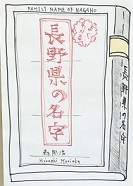 FAMILY NAME OF NAGANO
長野県の名字
森岡浩
Hiroshi Morioka
長野県の名字